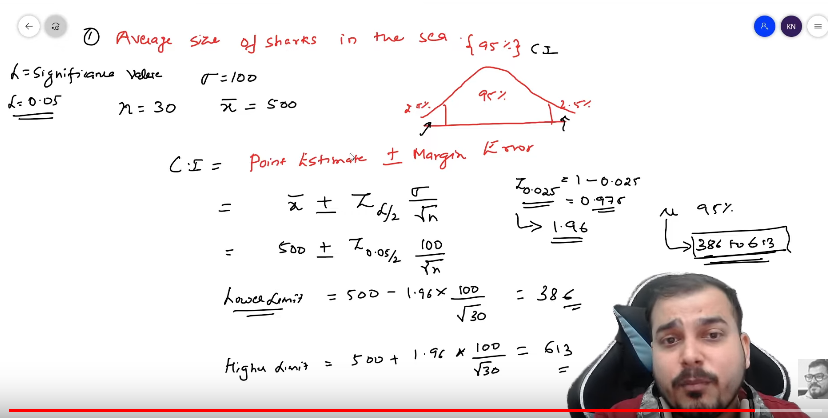 ① Average size of sharks in the sea {95%} C I
α = Significance Value σ = 100
α = 0.05 n = 30 x̄ = 500
2.5% 95% 2.5%
C.I = Point Estimate ± Margin Error
= x̄ ± Z α/2 σ/√n
Z0.025 = 1 - 0.025
= 0.975
↳ 1.96
μ 95%
↳ 386 to 613
= 500 ± Z 0.05/2 100/√n
Lower Limit = 500 - 1.96 × 100/√30 = 386
Higher Limit = 500 + 1.96 * 100/√30 = 613
R
KN